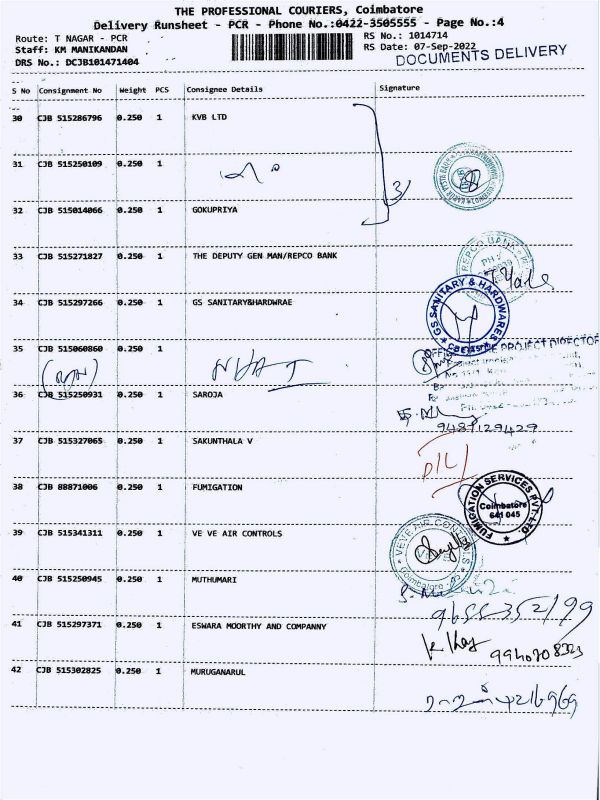 THE PROFESSIONAL COURIERS, Coimbatore
Delivery Runsheet - PCR - Phone No.:0422-3505555 - Page No.:4
Route: T NAGAR - PCR RS No.: 1014714
Staff: KM MANIKANDAN RS Date: 07-Sep-2022
DRS No.: DCJB101471404 DOCUMENTS DELIVERY
S No Consignment No Weight PCS Consignee Details Signature
30 CJB 515286796 0.250 1 KVB LTD
31 CJB 515250109 0.250 1
3
32 CJB 515014066 0.250 1 GOKUPRIYA
33 CJB 515271827 0.250 1 THE DEPUTY GEN MAN/REPCO BANK
REPCO BANK
34 CJB 515297266 0.250 1 GS SANITARY&HARDWRAE
GS SANITARY & HARDWARES
35 CJB 515060860 0.250 1
PROJECT DIRECTOR
NHAI
36 CJB 515250931 0.250 1 SAROJA
9487129429
37 CJB 515327065 0.250 1 SAKUNTHALA V
D/L
38 CJB 88871006 0.250 1 FUMIGATION
FUMIGATION SERVICES PVT. LTD
Coimbatore
641 045
39 CJB 515341311 0.250 1 VE VE AIR CONTROLS
VEVE AIR CONTROLS
40 CJB 515250945 0.250 1 MUTHUMARI
41 CJB 515297371 0.250 1 ESWARA MOORTHY AND COMPANNY
9655352199
9940708323
42 CJB 515302825 0.250 1 MURUGANARUL